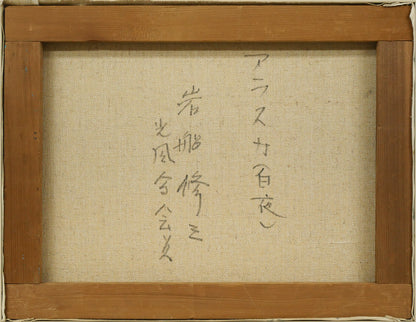 アラスカ(白夜)
岩船修三
光風会会员